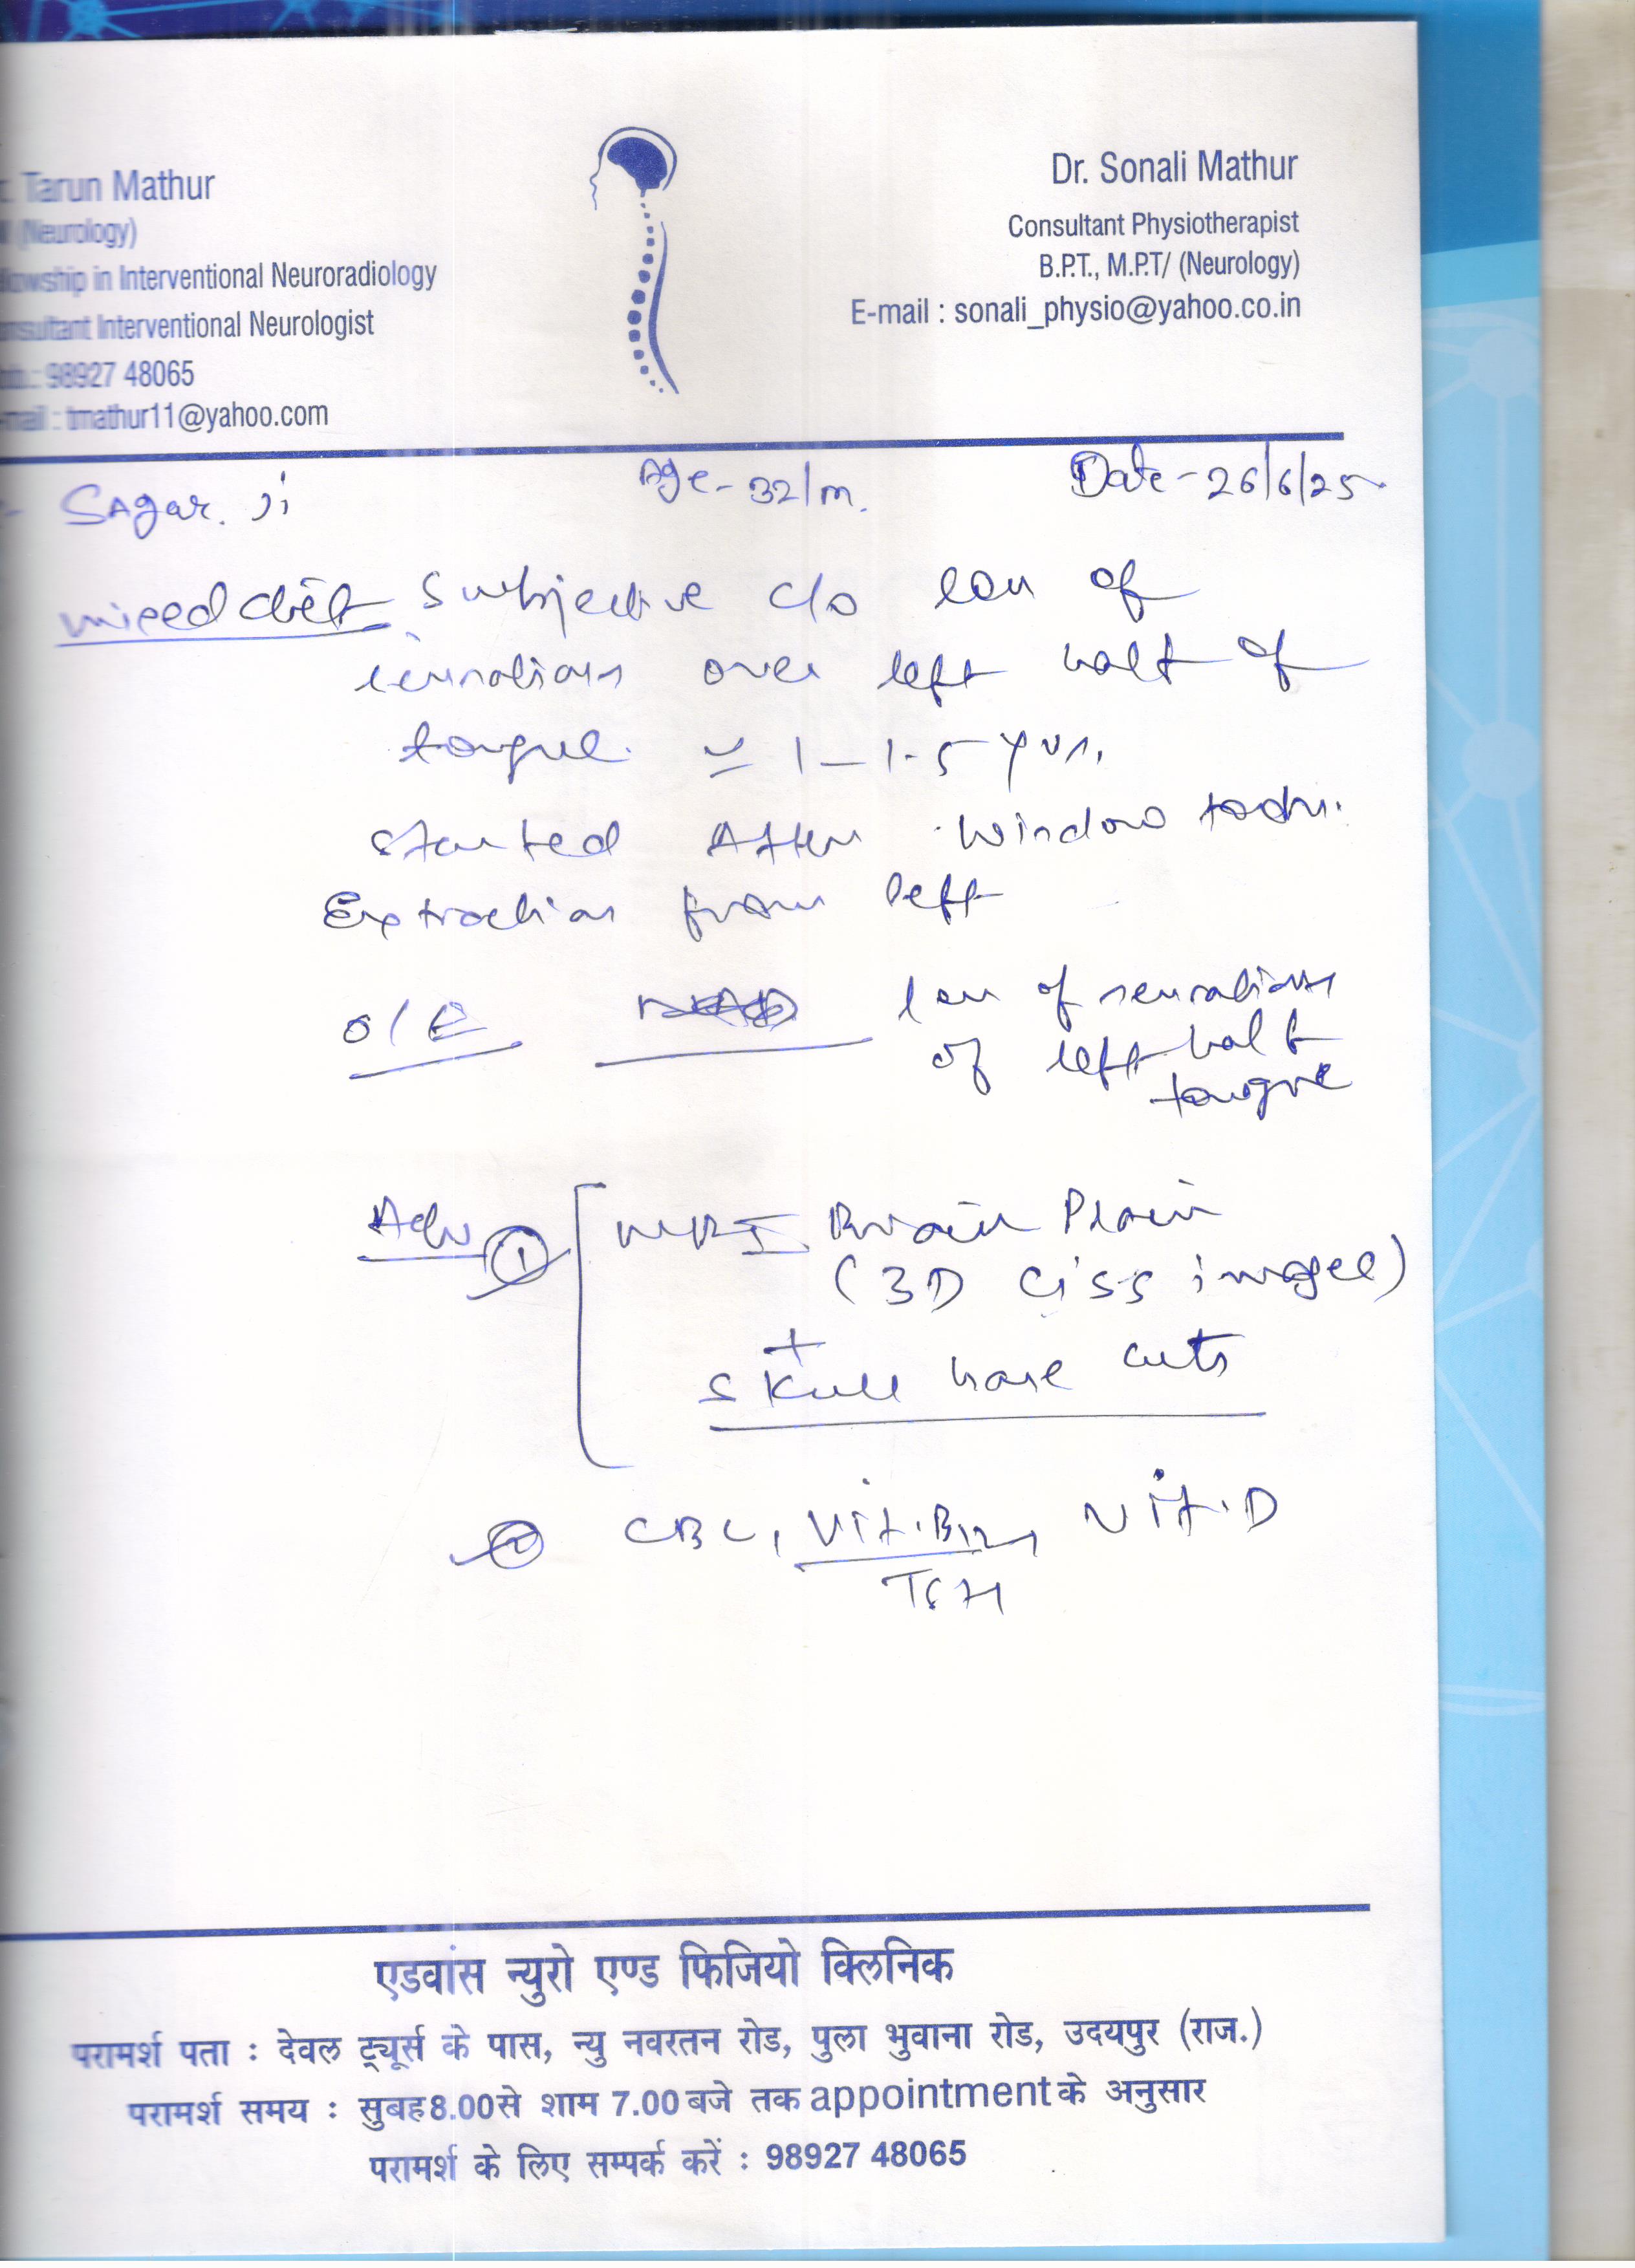 Tarun Mathur
(Neurology)
Fellowship in Interventional Neuroradiology
Consultant Interventional Neurologist
Mob.: 98927 48065
E-mail : tmathur11@yahoo.com
Dr. Sonali Mathur
Consultant Physiotherapist
B.P.T., M.P.T/ (Neurology)
E-mail : sonali_physio@yahoo.co.in
Sagar. ji Age - 32/m. Date - 26/6/25
mixed diet Subjective c/o loss of
sensations over left half of
tongue. ≃ 1-1.5 yrs.
started After window tooth.
Extraction from left
O/E NAD loss of sensations
of left half
tongue
Adv ① MRI Brain Plain
(3D CISS images)
+
skull base cuts
② CBC, Vit.B12, Vit.D
TSH
एडवांस न्युरो एण्ड फिजियो क्लिनिक
परामर्श पता : देवल ट्यूर्स के पास, न्यु नवरतन रोड, पुला भुवाना रोड, उदयपुर (राज.)
परामर्श समय : सुबह 8.00 से शाम 7.00 बजे तक appointment के अनुसार
परामर्श के लिए सम्पर्क करें : 98927 48065